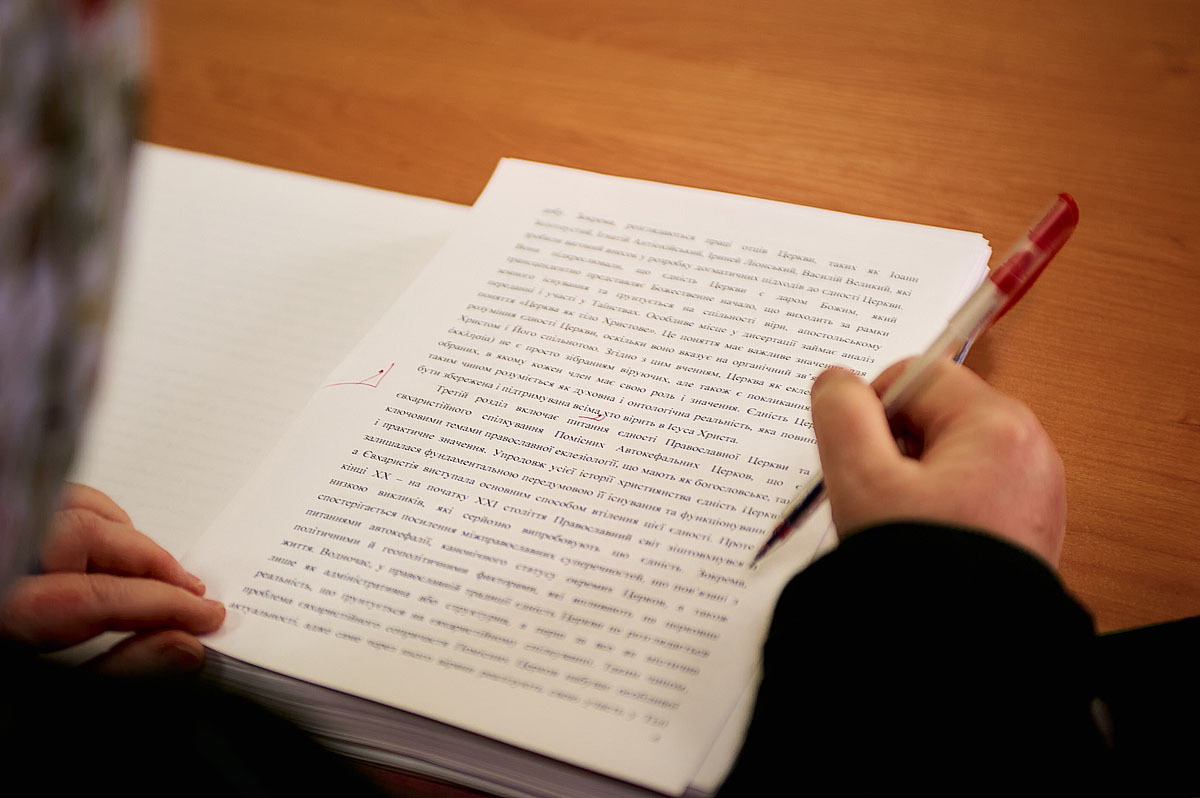 амбу. Зокрема, розглядаються праці отців Церкви, таких як Іоанн
Золотоустий, Ігнатій Антіохійський, Іриней Ліонський, Василій Великий, які
зробили вагомий внесок у розробку догматичних підходів до єдності Церкви.
Вони підкреслювали, що єдність Церкви є даром Божим, який
трансцендентно представляє Божественне начало, що виходить за рамки
земного існування та ґрунтується на спільності віри, апостольському
переданні і участі у Таїнствах. Особливе місце у дисертації займає аналіз
поняття «Церква як тіло Христове». Це поняття має важливе значення для
розуміння єдності Церкви, оскільки воно вказує на органічний зв’
Христом і Його спільнотою. Згідно з цим вченням, Церква як екле
(εκκλησία) не є просто зібранням віруючих, але також є покликання
обраних, в якому кожен член має свою роль і значення. Єдність Цер
таким чином розуміється як духовна і онтологічна реальність, яка повин
бути збережена і підтримувана всіма, хто вірить в Ісуса Христа.
Третій розділ включає питання єдності Православної Церкви та
євхаристійного спілкування Помісних Автокефальних Церков, що є
ключовими темами православної еклезіології, що мають як богословське, так
і практичне значення. Упродовж усієї історії християнства єдність Церкв
залишалася фундаментальною передумовою її існування та функціонуванн
а Євхаристія виступала основним способом втілення цієї єдності. Проте
кінці XX – на початку XXI століття Православний світ зіштовхнувся
низкою викликів, які серйозно випробовують цю єдність. Зокрема,
спостерігається посилення міжправославних суперечностей, що пов’язані з
питаннями автокефалії, канонічного статусу окремих Церков, а також
політичними й геополітичними факторами, які впливають на церковне
життя. Водночас, у православній традиції єдність Церкви не розглядається
лише як адміністративна або структурна, а перш за все як містична
реальність, що ґрунтується на євхаристійному спілкуванні. Таким чином,
проблема євхаристійного спілкування Помісних Церков набуває особливої
актуальності, адже саме через